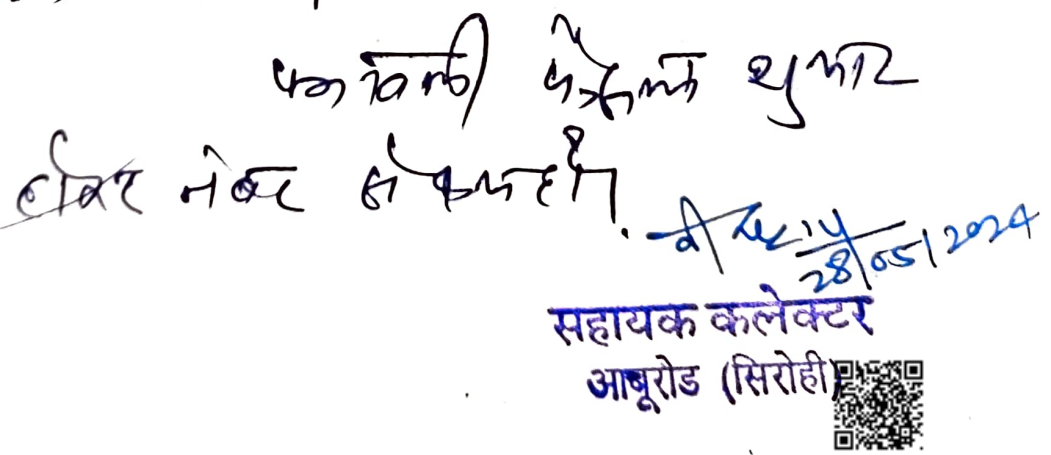 पत्रावली फैसल शुमार
होकर नंबर से कम हो।
28/05/2024
सहायक कलेक्टर
आबूरोड (सिरोही)